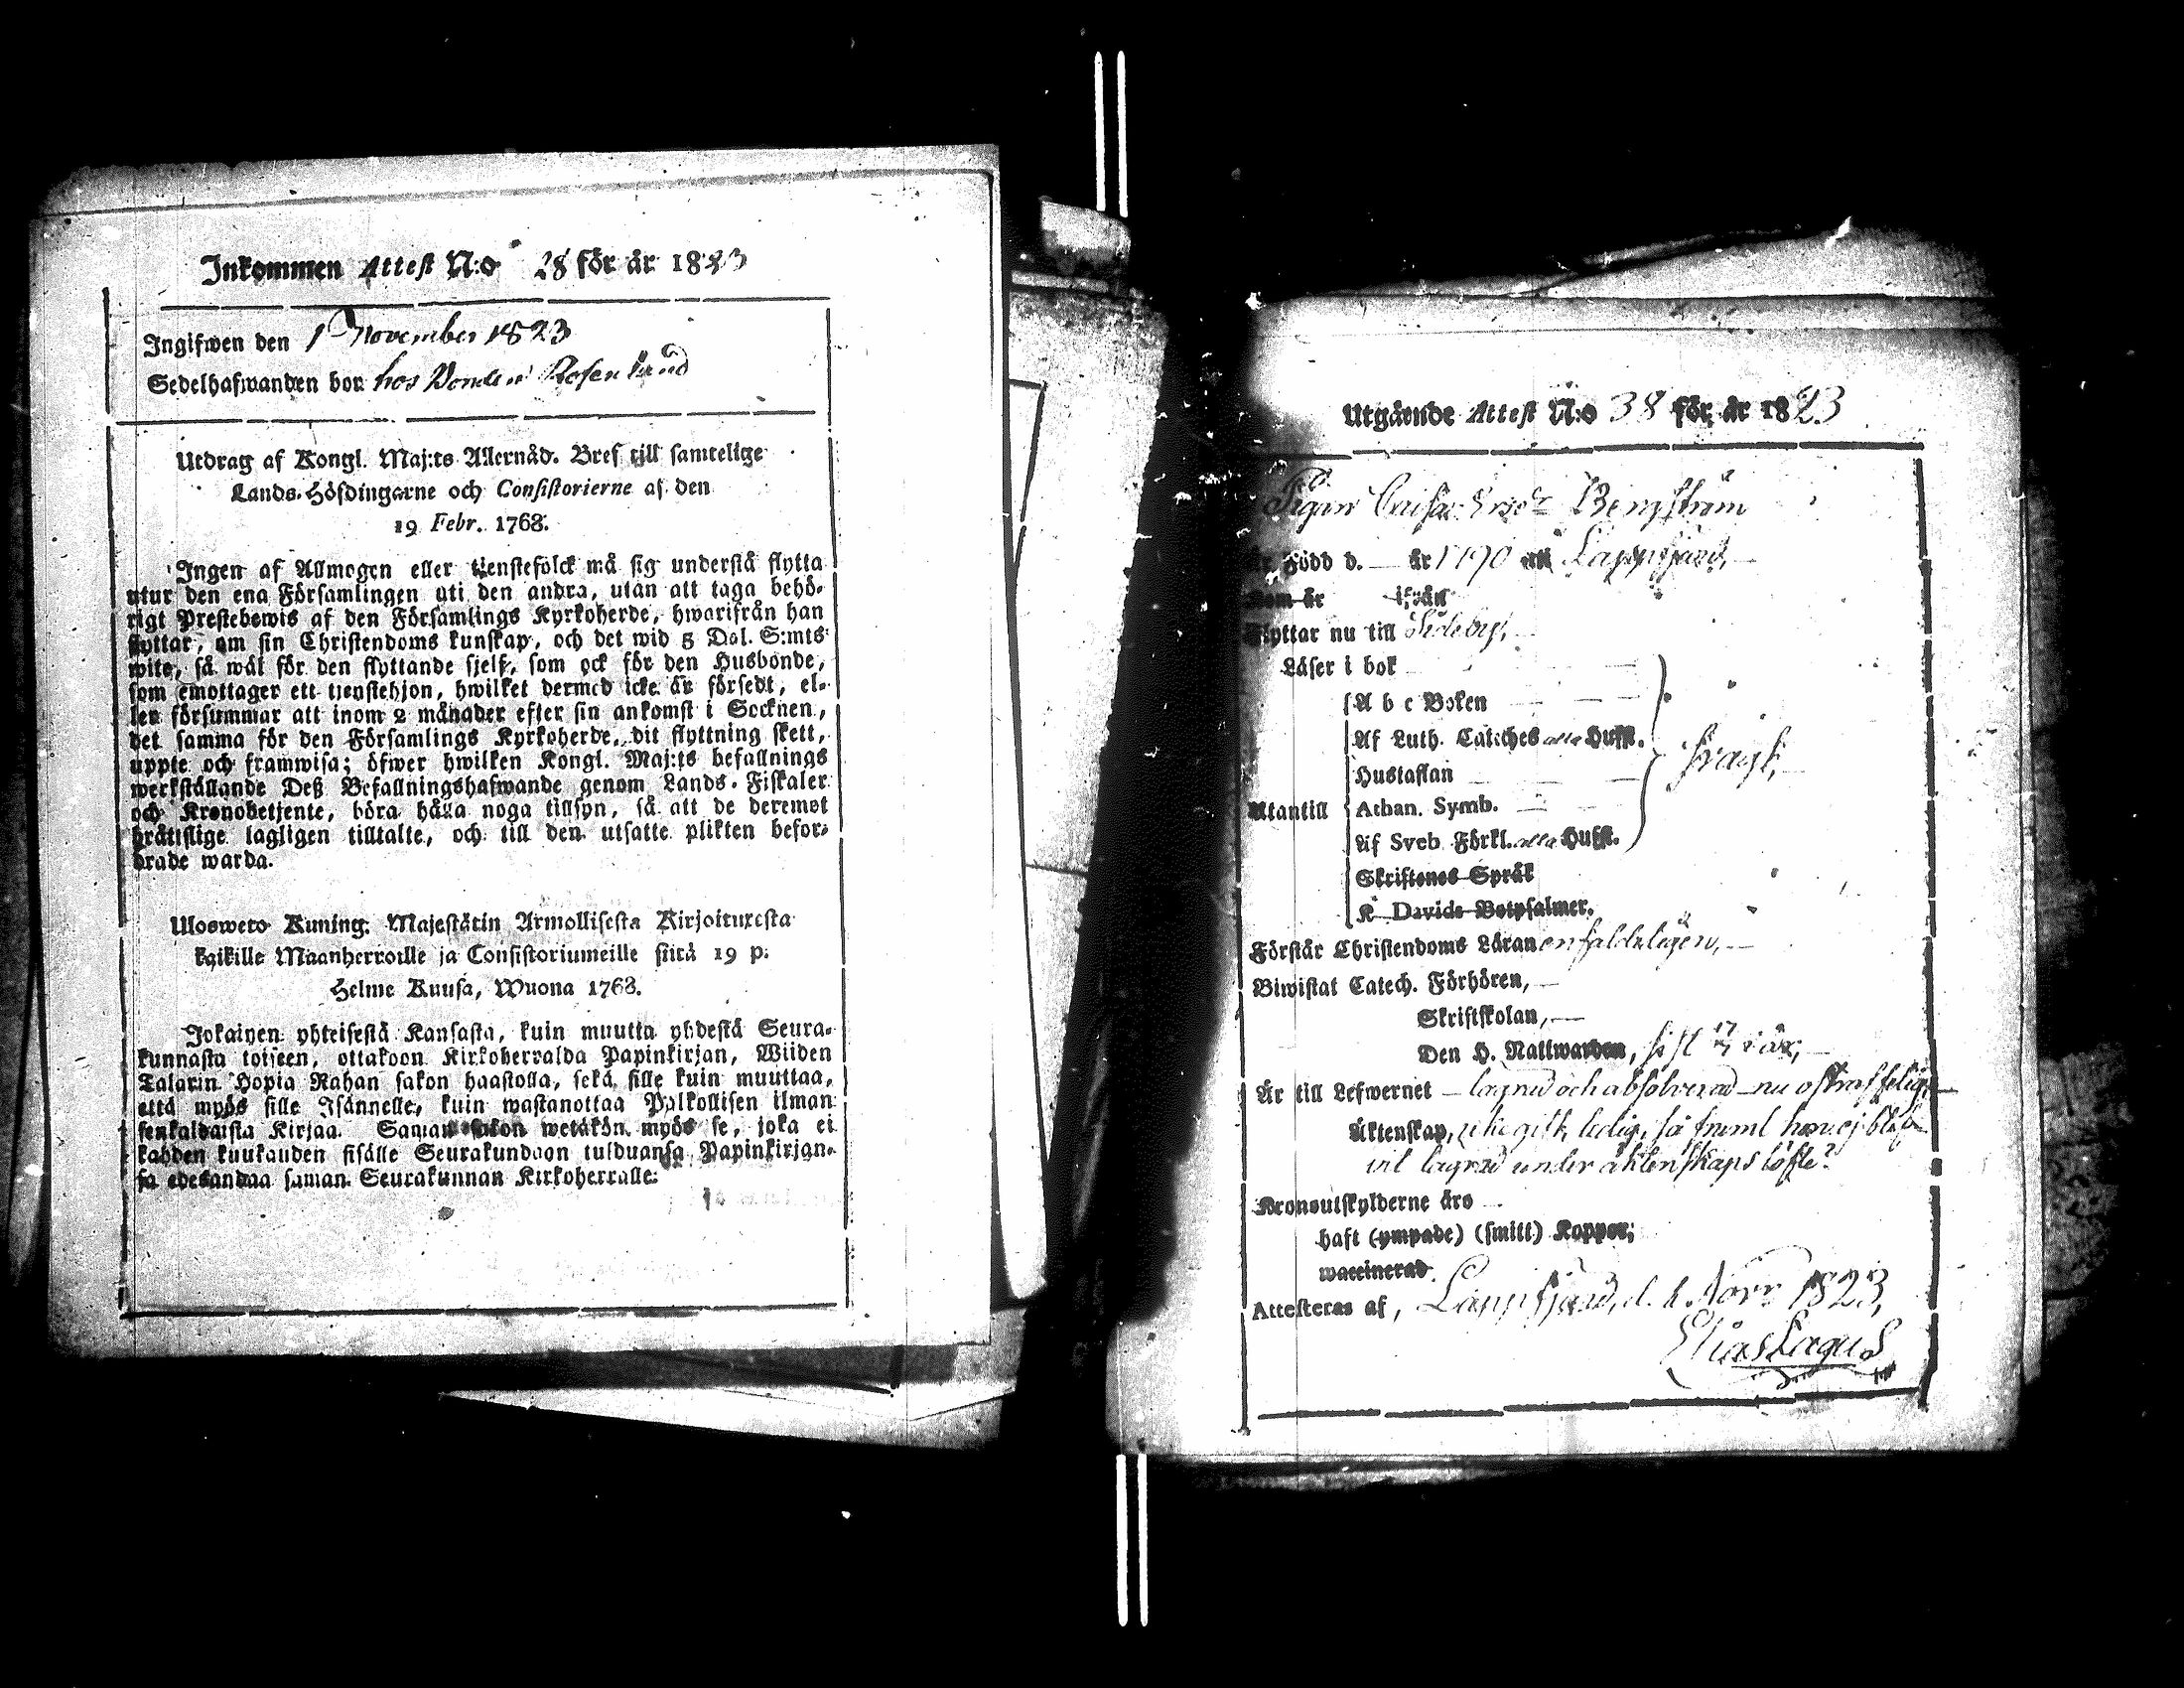 Inkommen Attest N:o 28 för år 1823
Ingifwen den 1 November 1823
Sedelhafwanden bor hos Bonden Rosenlund
Utdrag af Kongl. Maj:ts Allernåd. Bref till samtelige
Lands-Höfdingarne och Consistorierne af den
19 Febr. 1763.
Ingen af Allmogen eller tienstefolck må sig understå flytta
utur den ena Församlingen uti den andra, utan att taga behö-
rigt Prestebewis af den Församlings Kyrkoherde, hwarifrån han
flyttar, om sin Christendoms kunskap, och det wid 5 Dal. S:mts
wite, så wäl för den flyttande sjelf, som ock för den Husbonde,
som emottager ett tjenstehjon, hwilket dermed icke är försedt, el-
ler försummar att inom 2 månader efter sin ankomst i Socknen,
det samma för den Församlings Kyrkoherde, dit flyttning skett,
uppte och framwisa; öfwer hwilken Kongl. Maj:ts befallnings
werkställande Deß Befallningshafwande genom Lands-Fiskaler
och Kronobetjente, böra hafwa noga tillsyn, så att de deremot
bråttslige lagligen tilltalte, och till den utsatte plikten befor-
drade warda.
Ulosweto Kuning. Majestätin Armollisesta Kirjoituxesta
kaikille Maanherroille ja Consistoriumeille siitä 19 p.
Helme Kuusa, Wuona 1763.
Jokainen yhteisestä Kansasta, kuin muutta yhdestä Seura-
kunnasta toiseen, ottakoon Kirkoherralda Papinkirjan, Wiiden
Talarin Hopia Rahan sakon haastolla, sekä sille kuin muuttaa,
että myös sille Isännelle, kuin wastanottaa Palkollisen ilman
senkaldaista Kirjaa. Saman sakon wetäkön myös se, joka ei
kahden kuukauden sisälle Seurakundaan tulduansa Papinkirjan-
sa edesandaa saman Seurakunnan Kirkoherralle.
Utgående Attest N:o 38 för år 1823
Pigan Caisa Ersdr Bengström
Är Född d. — år 1790 uti Lappfjärd,
Kom år ifrån
Flyttar nu till Sideby,
Läser i bok
A b c Boken
Af Luth. Catches alla Hufst.
Hustaflan
Utantill Athan. Symb.
Af Sveb. Förkl. alla Hufst.
Skriftenes Språk
K Davids Botpsalmer.
Förstår Christendoms Läran enfaldeligen,
Biwistat Catech. Förhören,
Skriftskolan,
Den H. Nattwarden, sist i år,
Är till Lefwernet — lagrad och absolverad — nu ostraffelig,
Äktenskap, ledig, så framt hon ej blef
lagrad under äktenskaps löfte?
Kronoutskylderne äro
haft (ympade) (smitt) Koppor;
waccinerad.
Attesteras af, Lappfjärd, d. 1 Novr 1823,
Elias Lagus